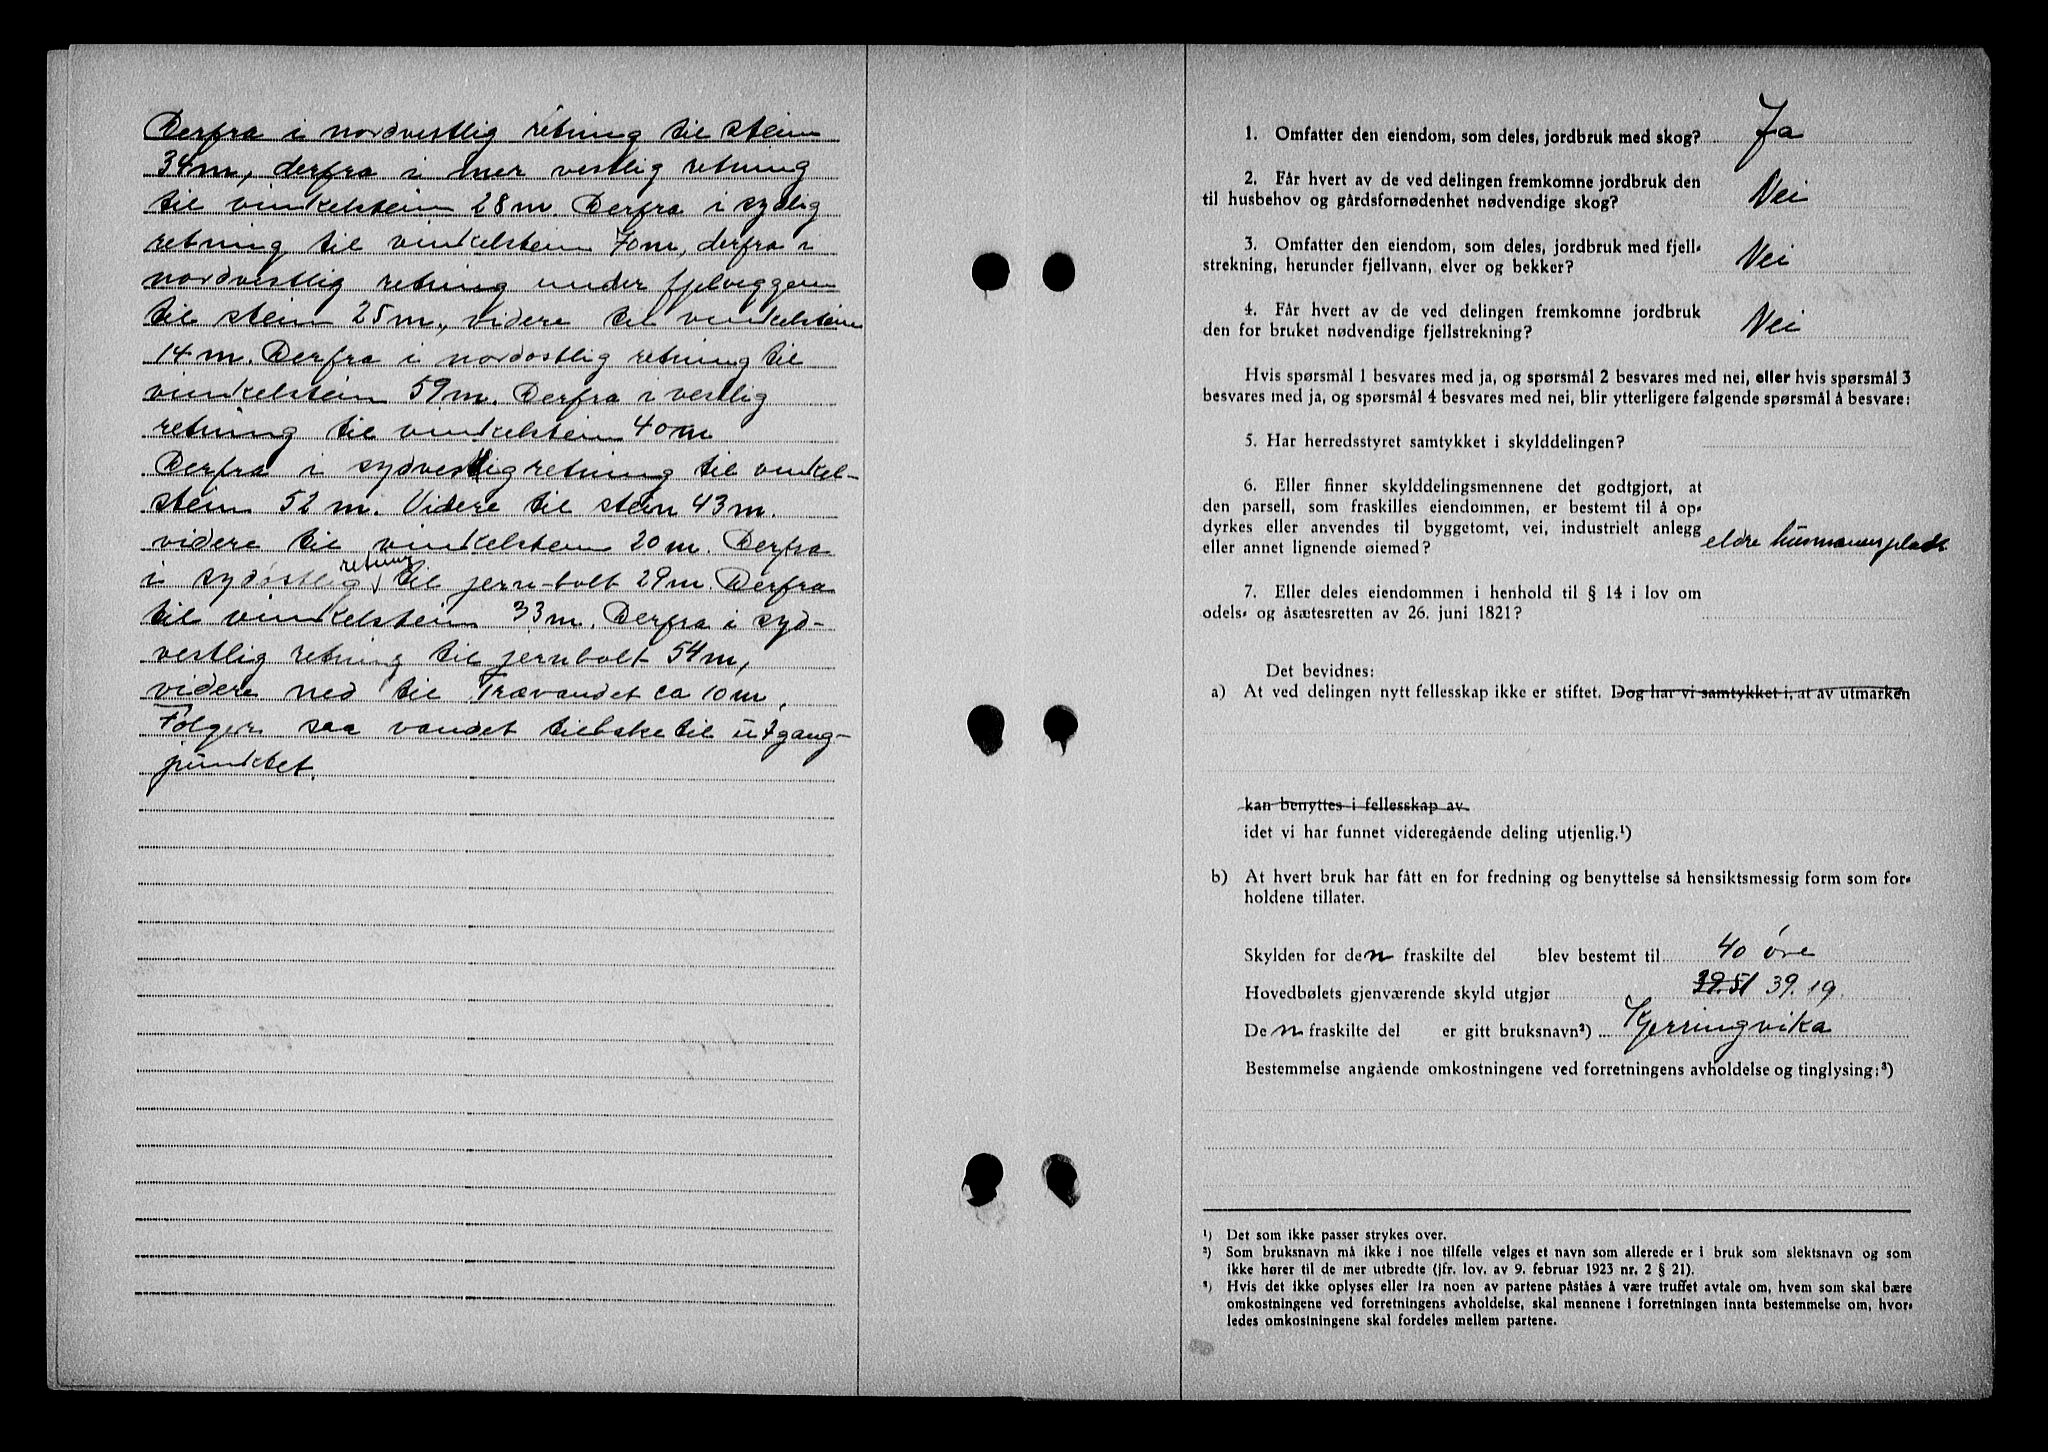 Derfra i nordvestlig retning til stein
34m, derfra i mer vestlig retning
til vinkelstein 28m. Derfra i sydlig
retning til vinkelstein 70m, derfra i
nordvestlig retning under fjelveggen
til stein 25m., videre til vinkelstein
14m. Derfra i nordostlig retning til
vinkelstein 59m. Derfra i vestlig
retning til vinkelstein 40m
Derfra i sydvestlig retning til vinkel-
stein 52 m. Videre til stein 43m.
videre til vinkelstein 20m. Derfra
i sydøstlig retning til jern-bolt 29m. Derfra
til vinkelstein 33m. Derfra i syd-
vestlig retning til jernbolt 54m,
videre ned til Trævandet ca 10m,
Følger saa vandet tilbake til utgang-
punktet.
1. Omfatter den eiendom, som deles, jordbruk med skog? Ja
2. Får hvert av de ved delingen fremkomne jordbruk den
til husbehov og gårdsfornødenhet nødvendige skog? Nei
3. Omfatter den eiendom, som deles, jordbruk med fjell-
strekning, herunder fjellvann, elver og bekker? Nei
4. Får hvert av de ved delingen fremkomne jordbruk
den for bruket nødvendige fjellstrekning? Nei
Hvis spørsmål 1 besvares med ja, og spørsmål 2 besvares med nei, eller hvis spørsmål 3
besvares med ja, og spørsmål 4 besvares med nei, blir ytterligere følgende spørsmål å besvare:
5. Har herredsstyret samtykket i skylddelingen?
6. Eller finner skylddelingsmennene det godtgjort, at
den parsell, som fraskilles eiendommen, er bestemt til å op-
dyrkes eller anvendes til byggetomt, vei, industrielt anlegg
eller annet lignende øiemed? eldre husmannsplads
7. Eller deles eiendommen i henhold til § 14 i lov om
odels- og åsætesretten av 26. juni 1821?
Det bevidnes:
a) At ved delingen nytt fellesskap ikke er stiftet. Dog har vi samtykket i, at av utmarken
kan benyttes i fellesskap av
idet vi har funnet videregående deling utjenlig.¹)
b) At hvert bruk har fått en for fredning og benyttelse så hensiktsmessig form som for-
holdene tillater.
Skylden for den fraskilte del blev bestemt til 40 øre
Hovedbølets gjenværende skyld utgjør 39.51 39.19.
Den fraskilte del er gitt bruksnavn²) Kjerringvika
Bestemmelse angående omkostningene ved forretningens avholdelse og tinglysing:³)
¹) Det som ikke passer strykes over.
²) Som bruksnavn må ikke i noe tilfelle velges et navn som allerede er i bruk som slektsnavn og som
ikke hører til de mer utbredte (jfr. lov. av 9. februar 1923 nr. 2 § 21).
³) Hvis det ikke oplyses eller fra noen av partene påstås å være truffet avtale om, hvem som skal bære
omkostningene ved forretningens avholdelse, skal mennene i forretningen innta bestemmelse om, hvor-
ledes omkostningene skal fordeles mellem partene.